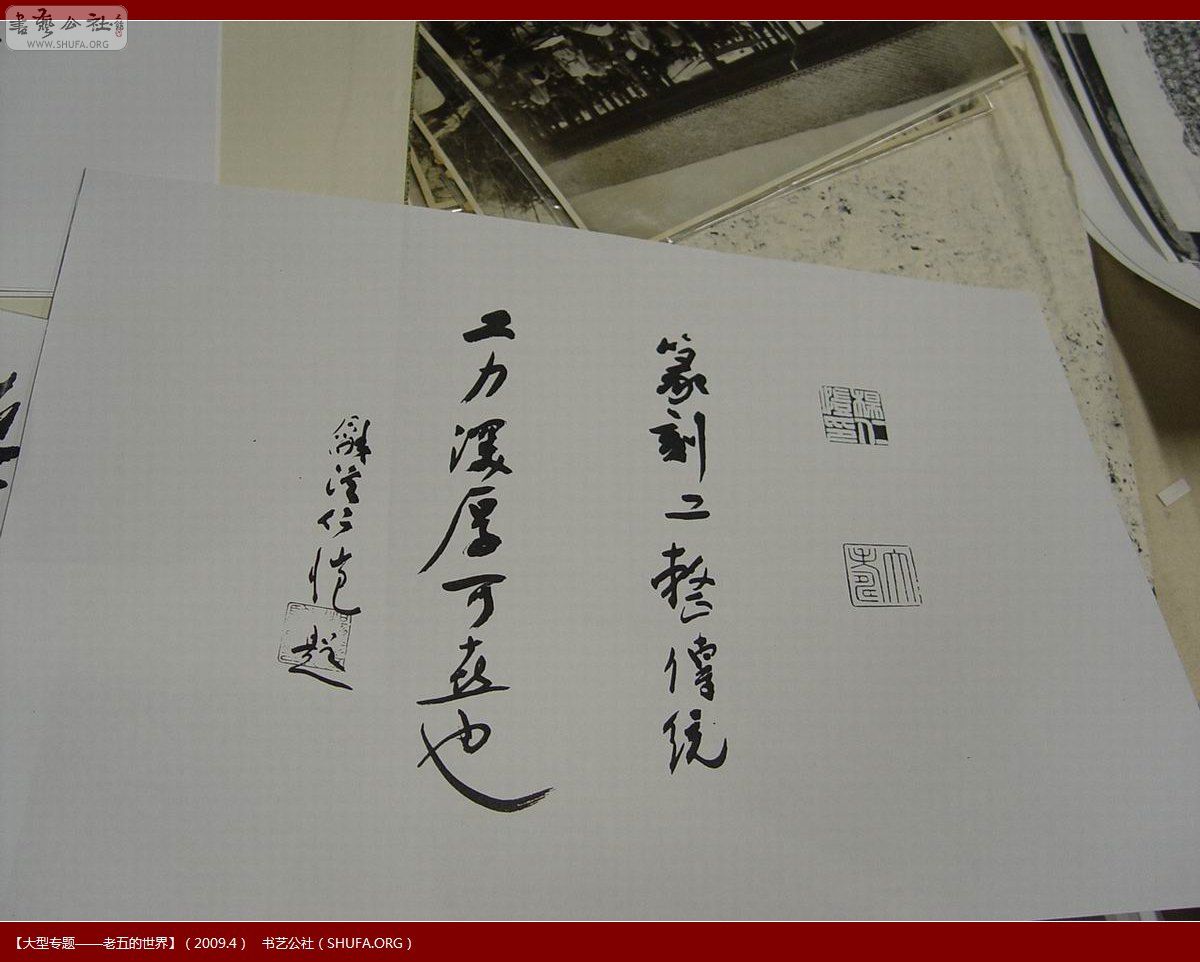 书艺公社
WWW.SHUFA.ORG
篆刻工整傳統
工力深厚可喜也
仁愷題
【大型专题——老五的世界】（2009.4） 书艺公社（SHUFA.ORG）